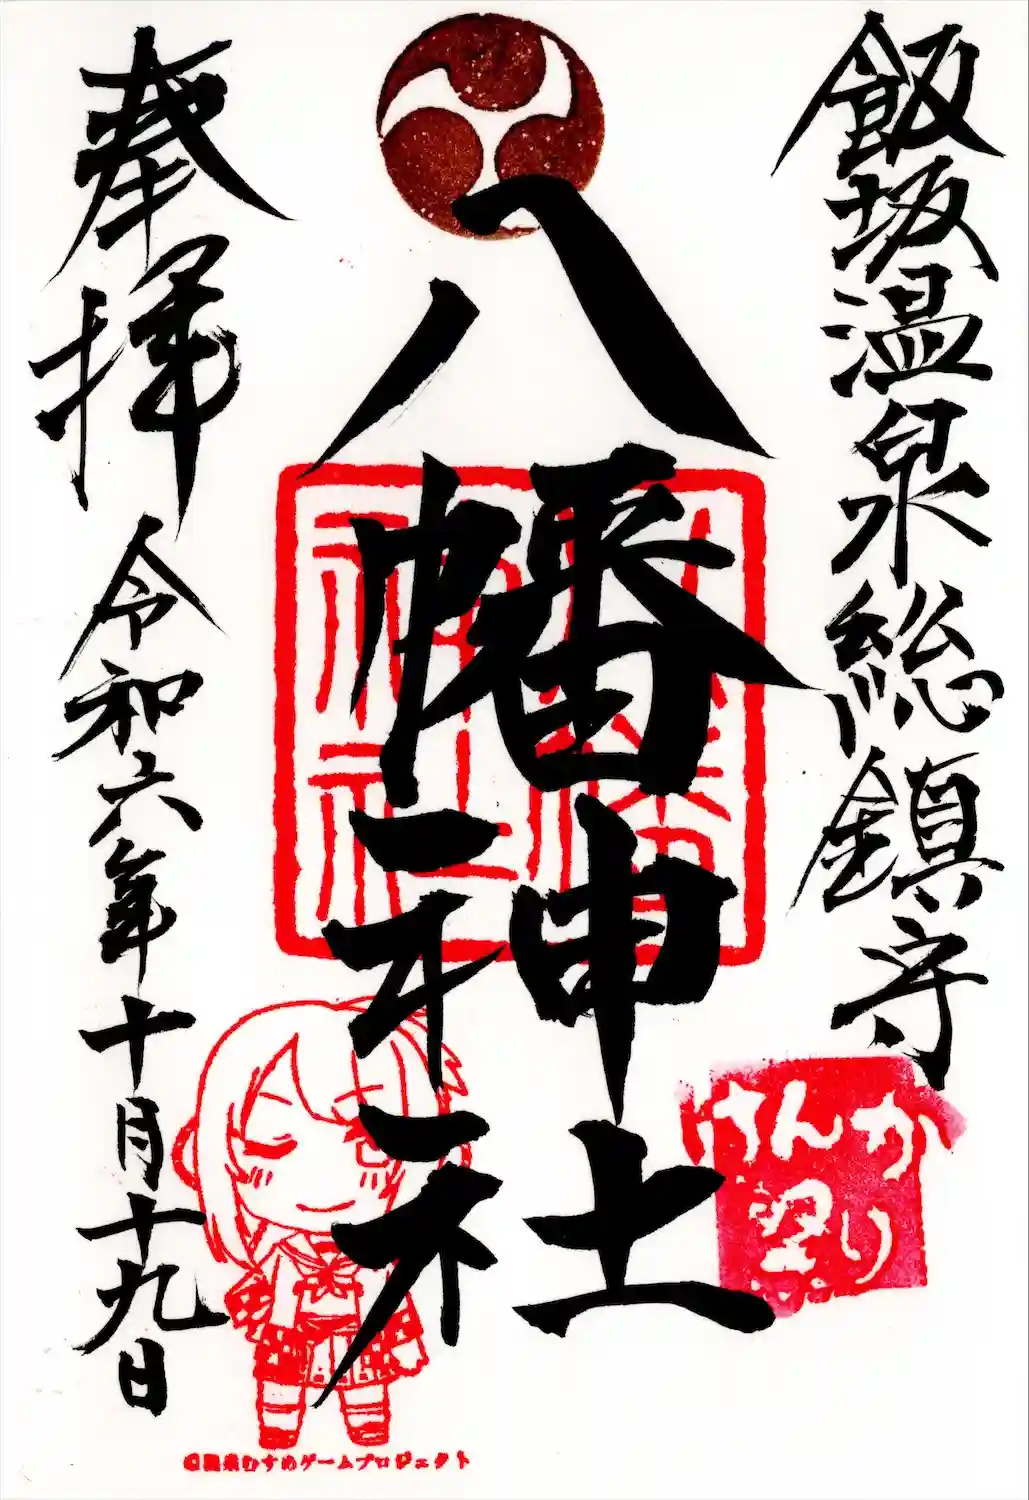 飯坂温泉総鎮守
八幡神社
奉拝
令和六年十月十九日
けんか
祭り
八幡
神社
©温泉むすめゲームプロジェクト